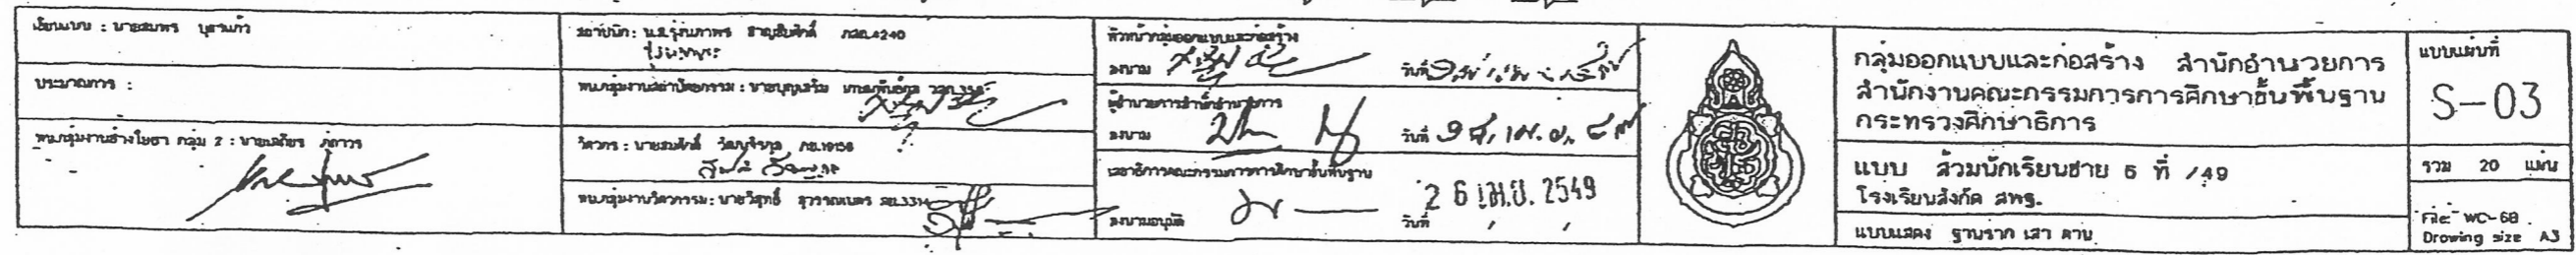 เขียนแบบ : นายสมพร บุตรแก้ว
ประมาณการ :
หน.กลุ่มงานช่างโยธา กลุ่ม 2 : นายเสถียร
สถาปนิก : น.ส.รุ่งนภาพร ภสถ.4240
หน.กลุ่มงานสถาปัตยกรรม : นายบุญเสริม
วิศวกร : นายสมศักดิ์ ภย.19156
หน.กลุ่มงานวิศวกรรม : นายวิสุทธิ์ สุวรรณเนตร สย.3314
หัวหน้ากลุ่มออกแบบและก่อสร้าง
ลงนาม วันที่
ผู้อำนวยการสำนักอำนวยการ
ลงนาม วันที่
เลขาธิการคณะกรรมการการศึกษาขั้นพื้นฐาน
ลงนามอนุมัติ วันที่ 26 เม.ย. 2549
กลุ่มออกแบบและก่อสร้าง สำนักอำนวยการ
สำนักงานคณะกรรมการการศึกษาขั้นพื้นฐาน
กระทรวงศึกษาธิการ
แบบ ส้วมนักเรียนชาย 6 ที่ /49
โรงเรียนสังกัด สพฐ.
แบบแสดง ฐานราก เสา คาน
แบบแผ่นที่
S-03
รวม 20 แผ่น
File: WC-6B
Drowing size A3